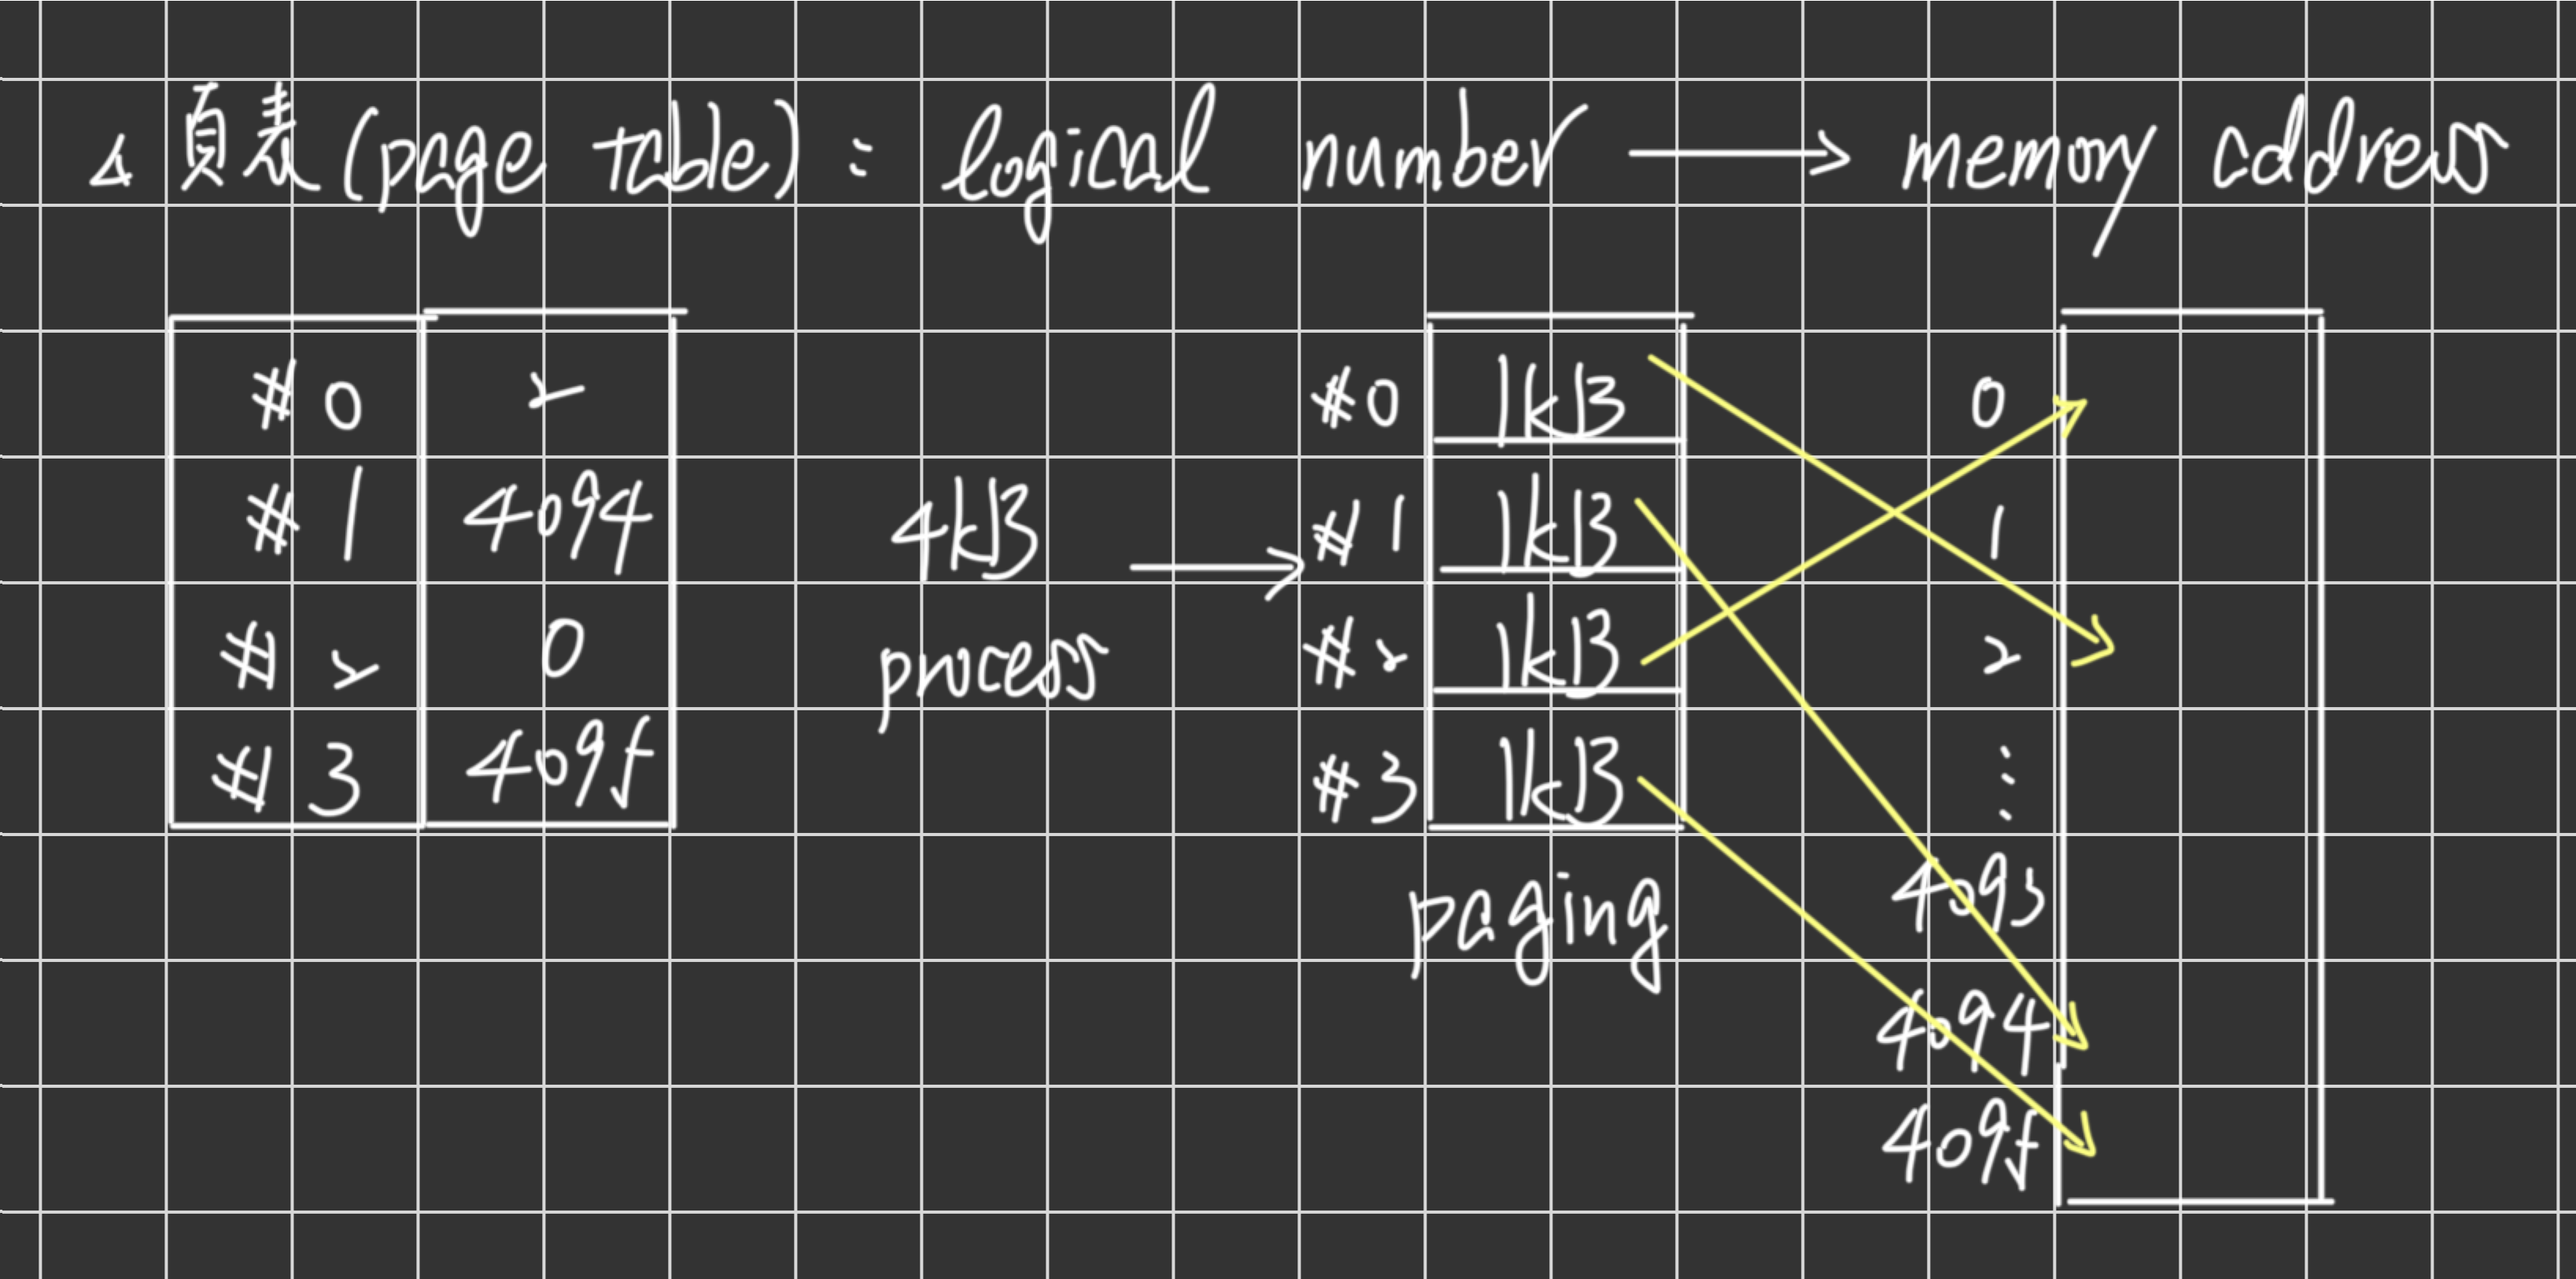 △ 頁表 (page table) : logical number → memory address
#0 2
#1 4094
#2 0
#3 4095
4kB
process
→
#0 1kB
#1 1kB
#2 1kB
#3 1kB
paging
0
1
2
⋮
4093
4094
4095